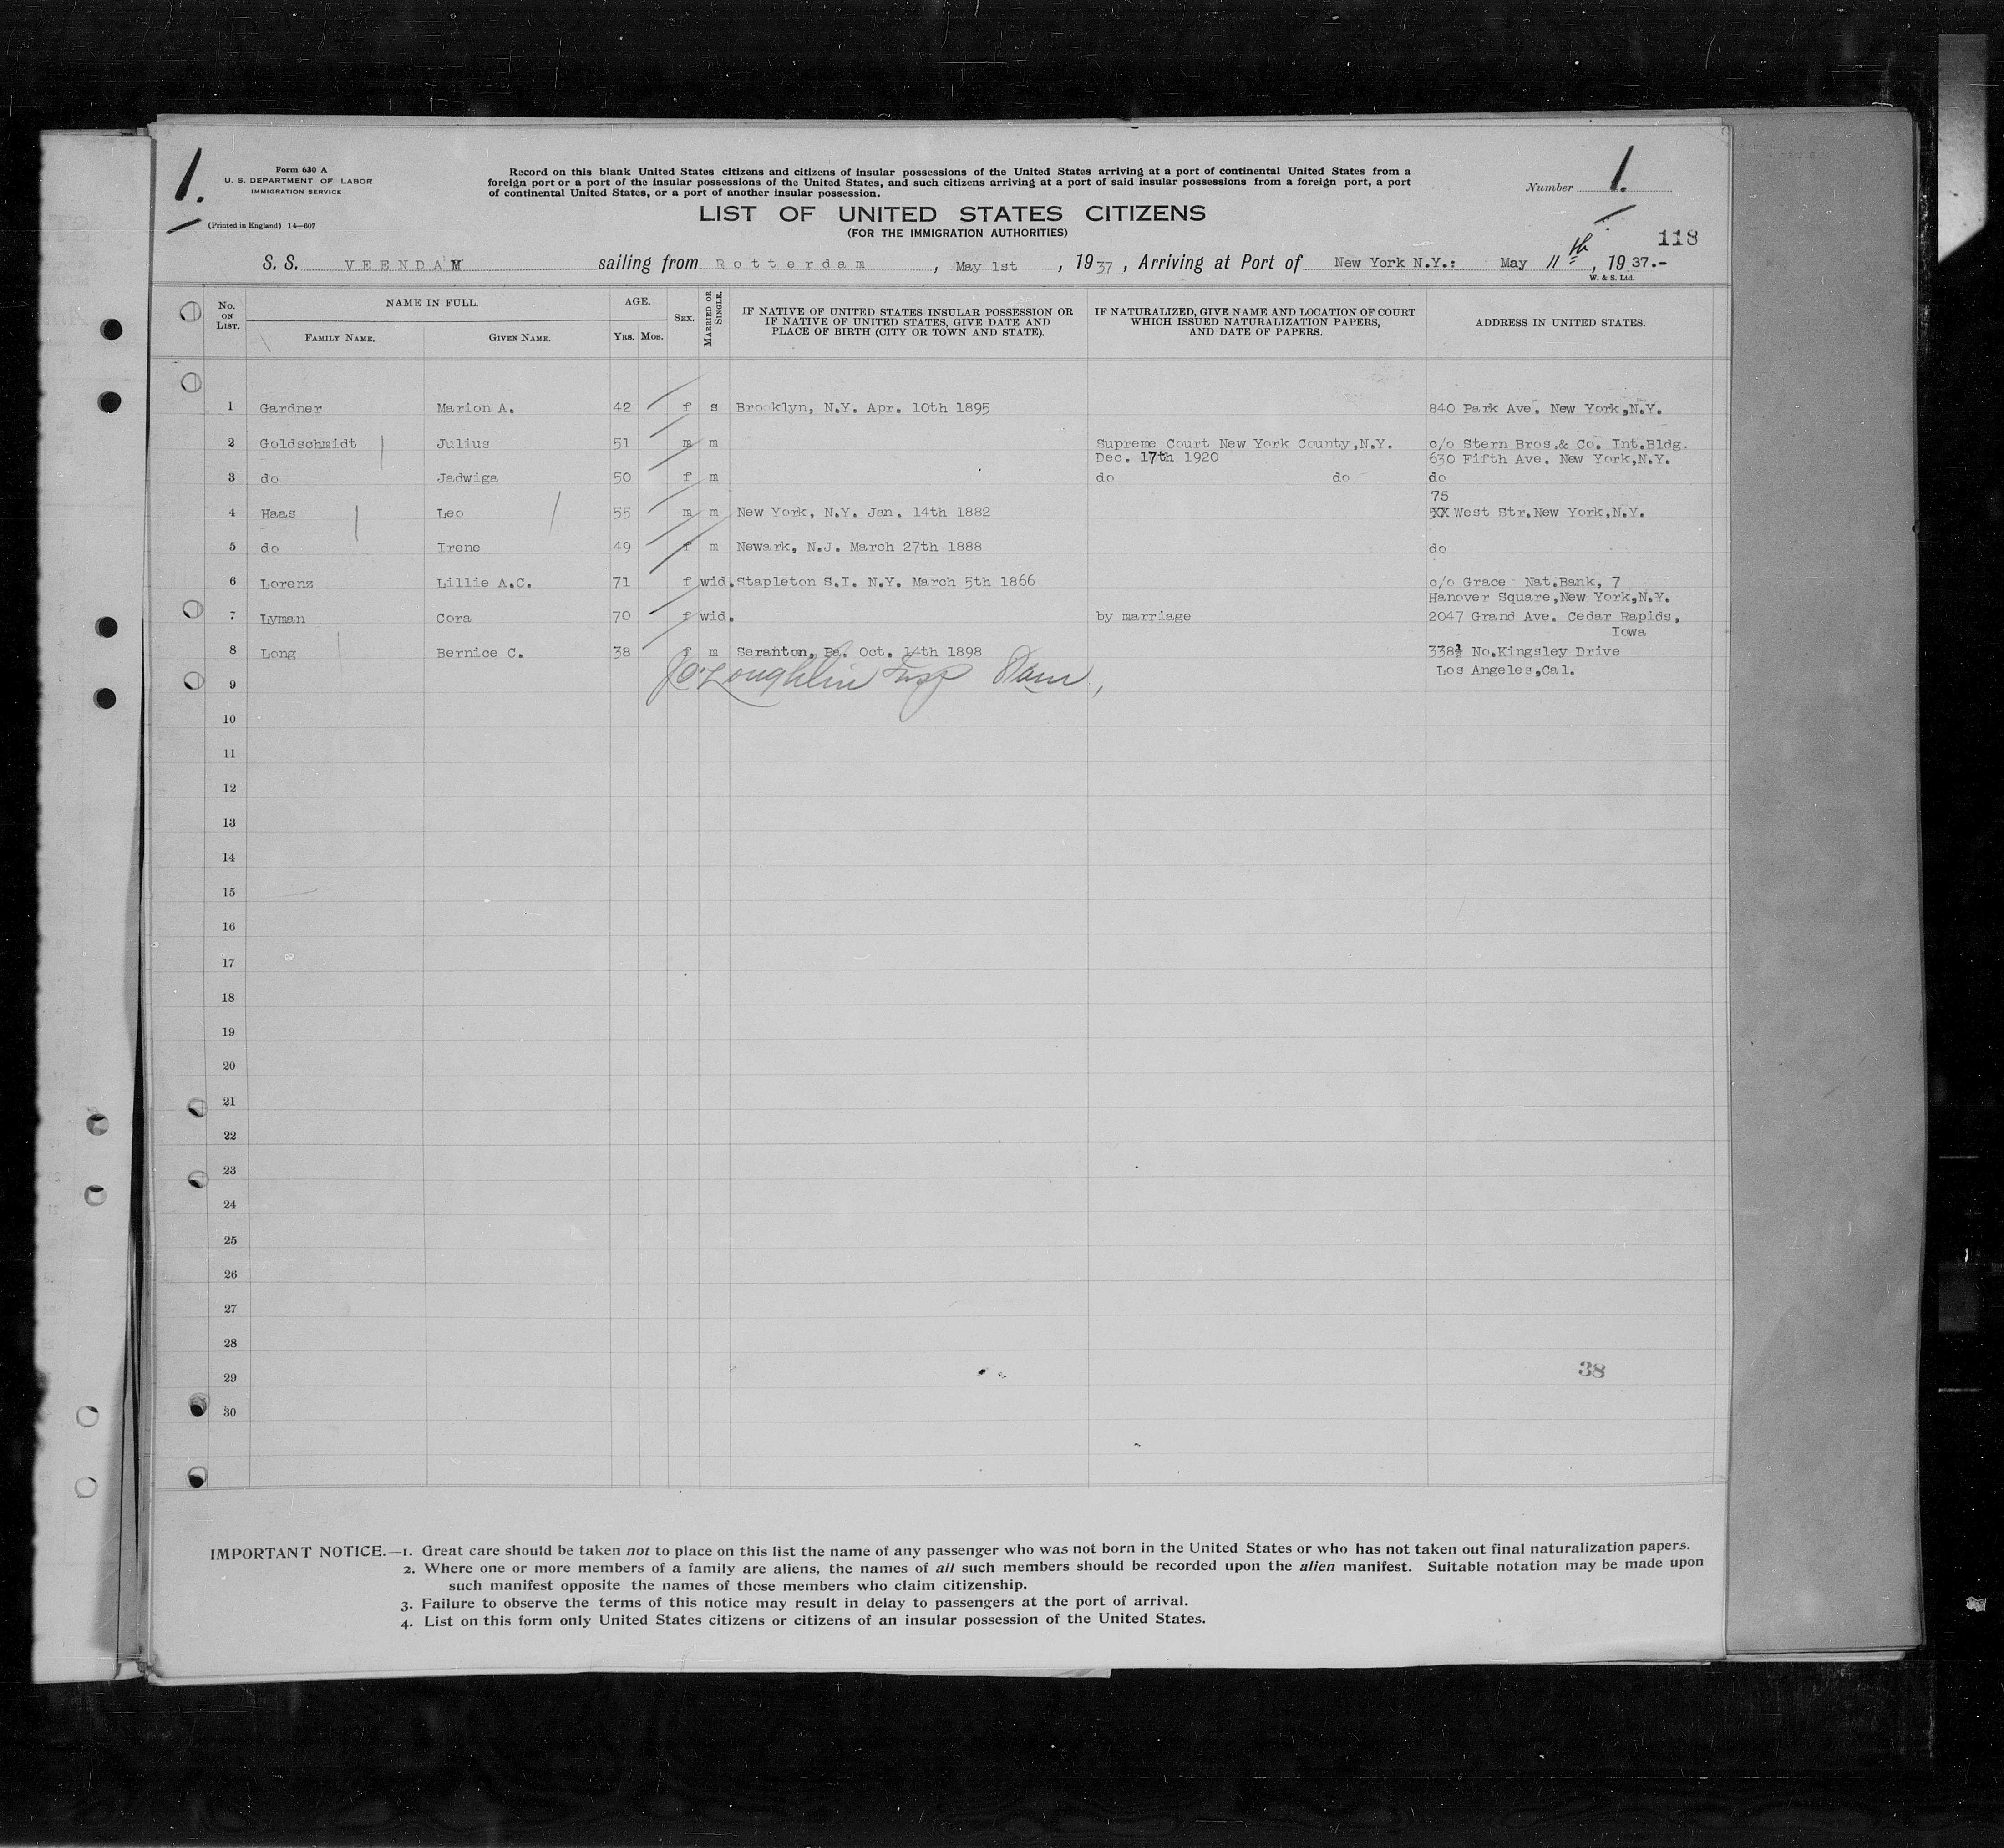 1.
Form 630 A
U. S. DEPARTMENT OF LABOR
IMMIGRATION SERVICE
(Printed in England) 14—607
Record on this blank United States citizens and citizens of insular possessions of the United States arriving at a port of continental United States from a
foreign port or a port of the insular possessions of the United States, and such citizens arriving at a port of said insular possessions from a foreign port, a port
of continental United States, or a port of another insular possession.
Number 1.
LIST OF UNITED STATES CITIZENS
(FOR THE IMMIGRATION AUTHORITIES)
118
S. S. VEENDAM sailing from Rotterdam, May 1st, 1937, Arriving at Port of New York N.Y.: May 11th, 1937.-
W. & S. Ltd.
No. ON LIST. NAME IN FULL. AGE. SEX. MARRIED OR SINGLE. IF NATIVE OF UNITED STATES INSULAR POSSESSION OR IF NATIVE OF UNITED STATES, GIVE DATE AND PLACE OF BIRTH (CITY OR TOWN AND STATE). IF NATURALIZED, GIVE NAME AND LOCATION OF COURT WHICH ISSUED NATURALIZATION PAPERS, AND DATE OF PAPERS. ADDRESS IN UNITED STATES.
FAMILY NAME. GIVEN NAME. YRS. MOS.
1 Gardner Marion A. 42 f s Brooklyn, N.Y. Apr. 10th 1895 840 Park Ave. New York,N.Y.
2 Goldschmidt Julius 51 m m Supreme Court New York County,N.Y. c/o Stern Bros.& Co. Int.Bldg.
Dec. 17th 1920 630 Fifth Ave. New York,N.Y.
3 do Jadwiga 50 f m do do do
75
4 Haas Leo 55 m m New York, N.Y. Jan. 14th 1882 XX West Str.New York,N.Y.
5 do Irene 49 f m Newark, N.J. March 27th 1888 do
6 Lorenz Lillie A.C. 71 f wid. Stapleton S.I. N.Y. March 5th 1866 c/o Grace Nat.Bank, 7
Hanover Square,New York,N.Y.
7 Lyman Cora 70 f wid. by marriage 2047 Grand Ave. Cedar Rapids,
Iowa
8 Long Bernice C. 38 f m Seranton, Pa. Oct. 14th 1898 338½ No.Kingsley Drive
Los Angeles,Cal.
O'Loughlin Insp
9
10
11
12
13
14
15
16
17
18
19
20
21
22
23
24
25
26
27
28
29 38
30
IMPORTANT NOTICE.—1. Great care should be taken not to place on this list the name of any passenger who was not born in the United States or who has not taken out final naturalization papers.
2. Where one or more members of a family are aliens, the names of all such members should be recorded upon the alien manifest. Suitable notation may be made upon
such manifest opposite the names of those members who claim citizenship.
3. Failure to observe the terms of this notice may result in delay to passengers at the port of arrival.
4. List on this form only United States citizens or citizens of an insular possession of the United States.